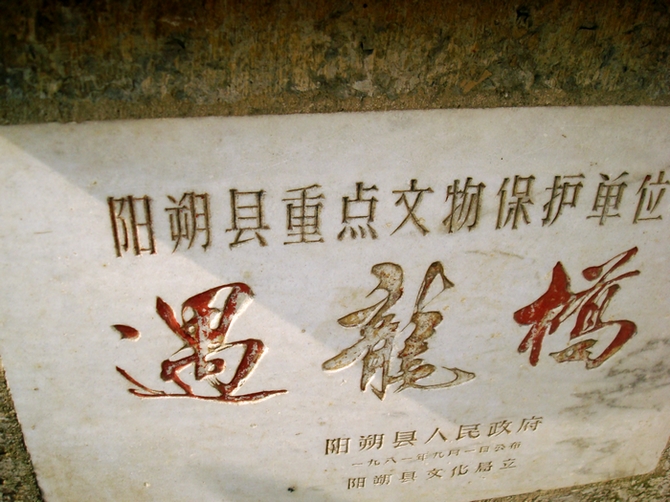 阳朔县重点文物保护单位
遇龍橋
阳朔县人民政府
一九八一年九月一日公布
阳朔县文化局立